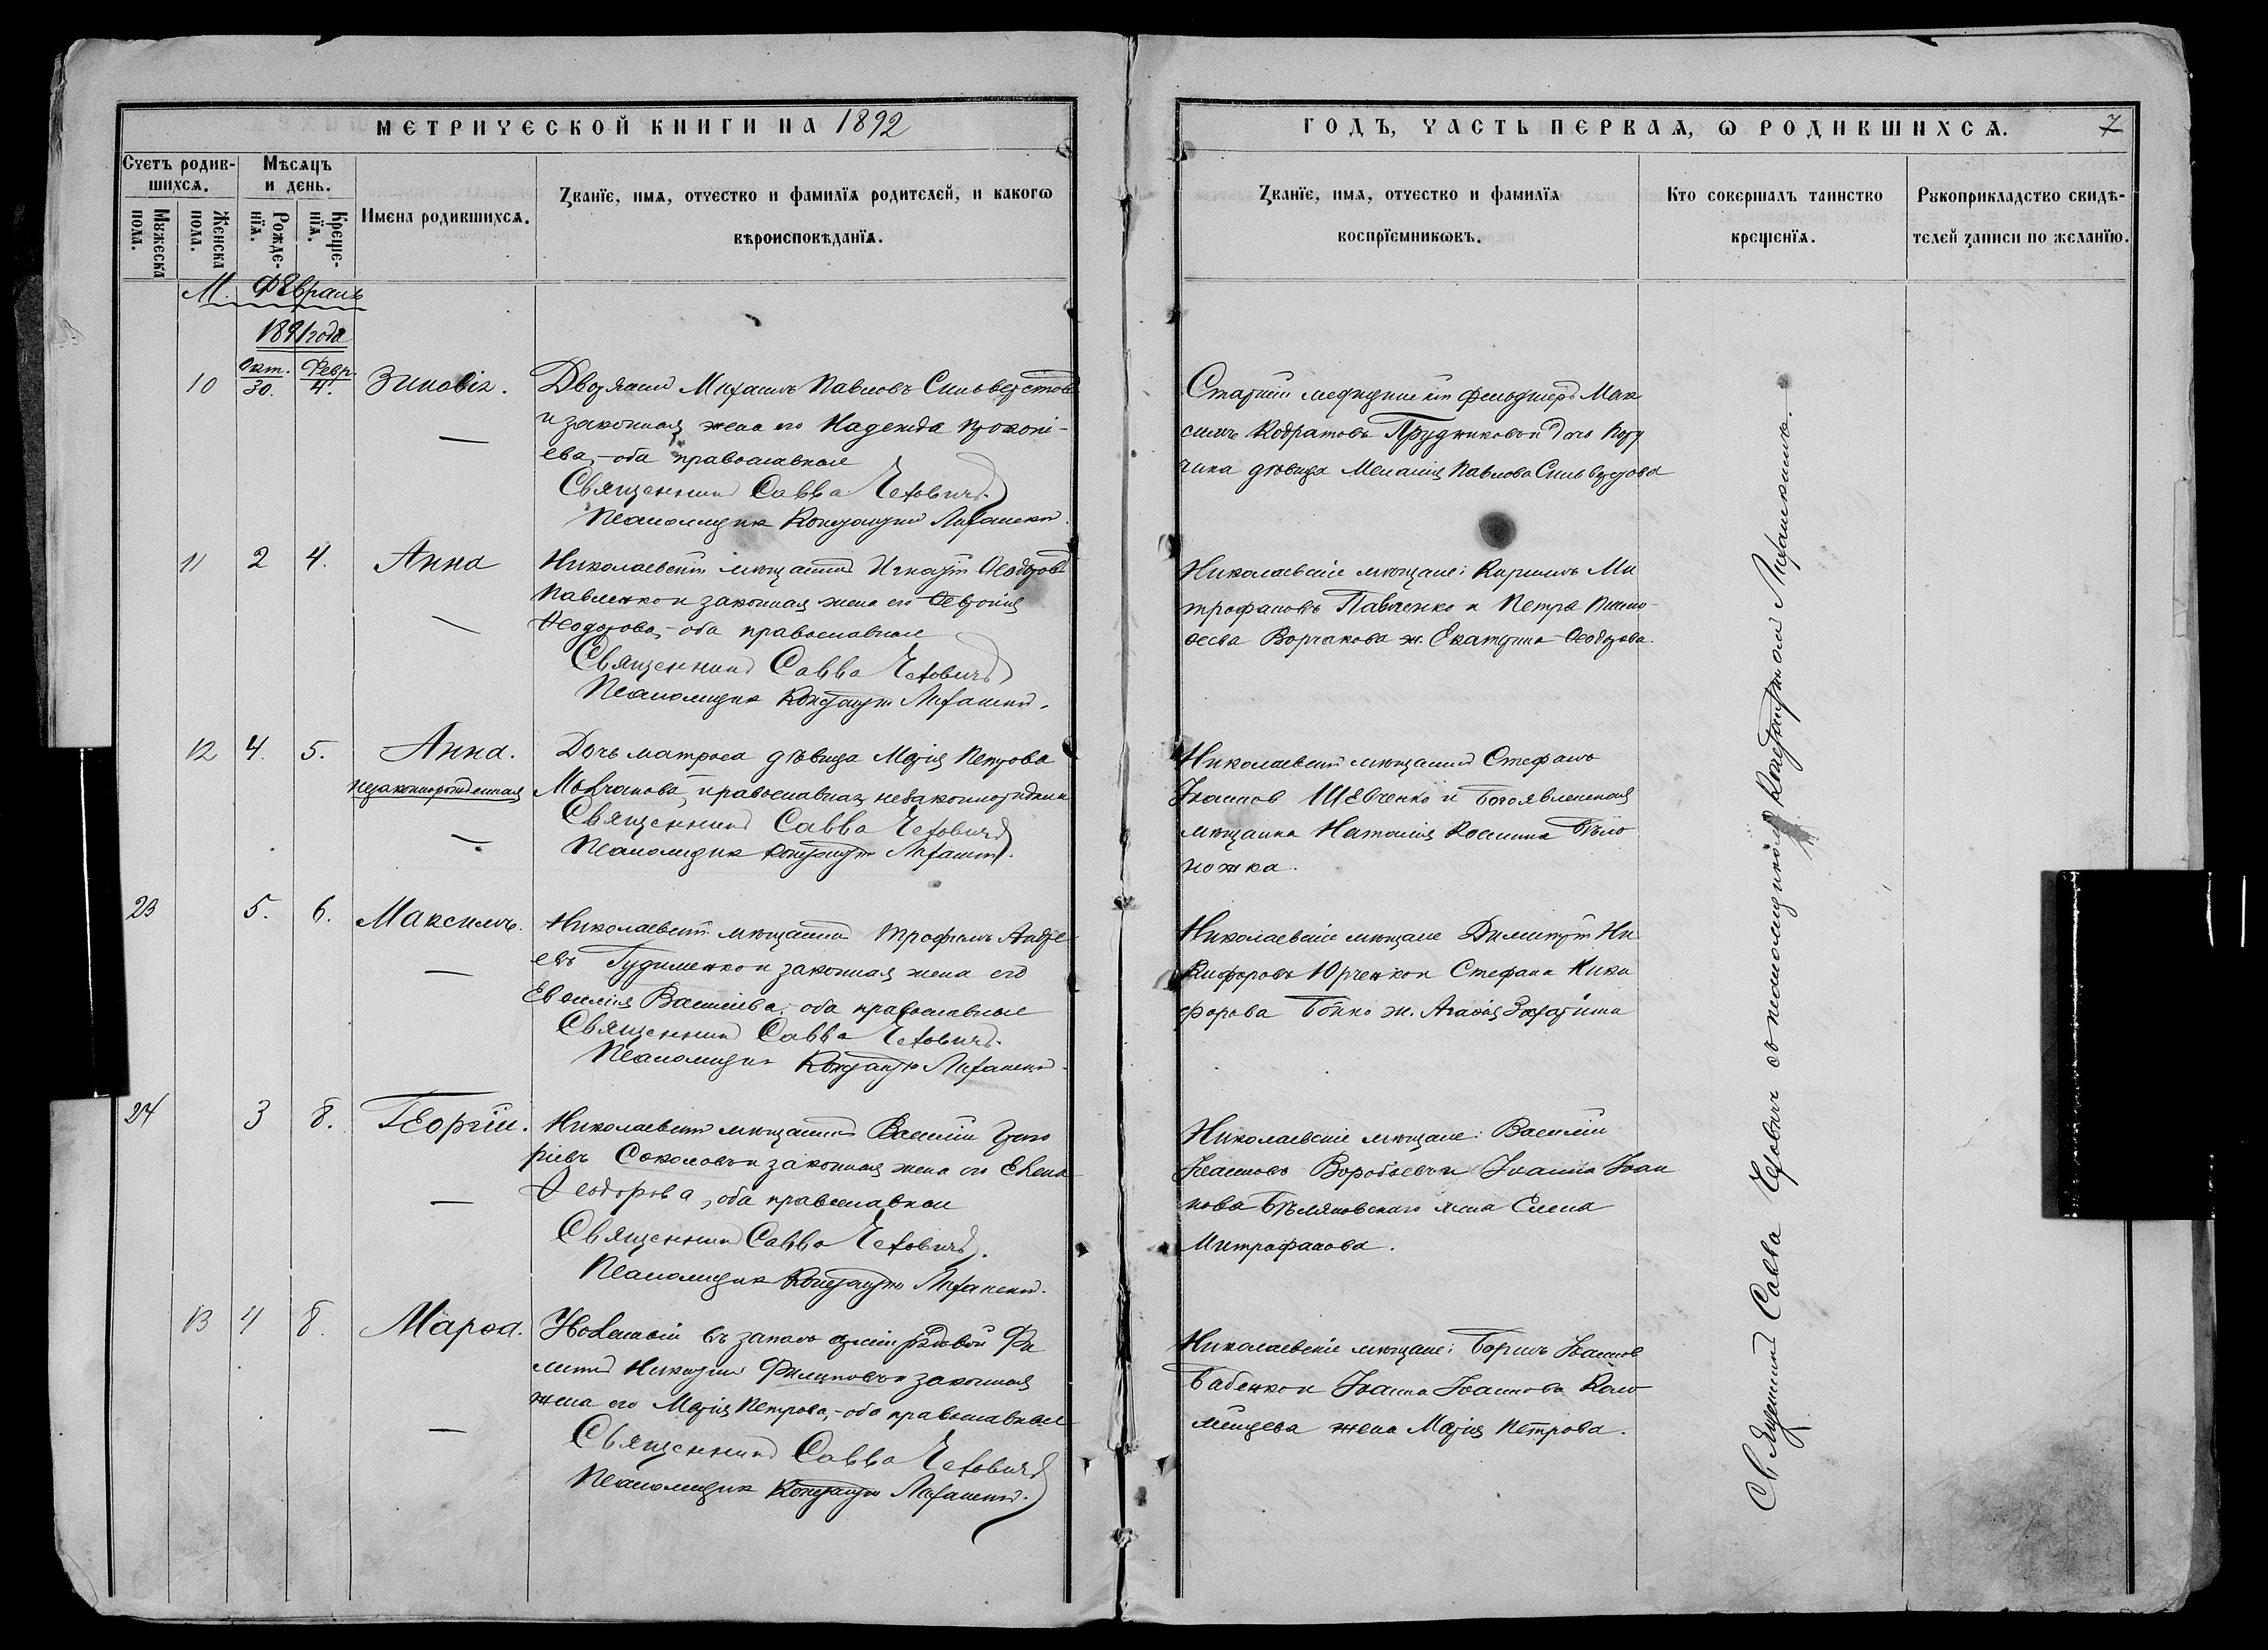 МЕТРИЧЕСКОЙ КНИГИ НА 1892
ГОДЪ, ЧАСТЬ ПЕРВАЯ, Ѡ РОДИВШИХСЯ. 7
Счетъ родившихся.
Мужеска пола.
Женска пола.
Мѣсяцъ и день.
Рожденїя.
Крещенїя.
Имена родившихся.
Званїе, имя, отчество и фамилїя родителей, и какогѡ
вѣроисповѣданїя.
Званїе, имя, отчество и фамилїя
воспрїемникѡвъ.
Кто совершалъ таинство
крещенїя.
Рукоприкладство свидѣ-
телей записи по желанїю.
М. Февраль
1891 года
10 Окт. 30. Февр. 4. Зиновія.
Дворянин Михаилъ Павловъ Сильверстов
и законная жена его Надежда Прокопі-
ева, - оба православные
Священникъ Савва Чехович
Псаломщик Константин
Старший медицинскій фельдшеръ Мак
симъ Кодратовъ Прудниковъ и дочь Пору
чика дѣвица Меланія Павлова Сильверстова
11 2 4. Анна
Николаевскій мѣщанинъ Игнатій Ѳеодоров
Павленко и законная жена его Ѳевронія
Ѳеодорова, - оба православные
Священникъ Савва Чехович
Псаломщик Константин
Николаевскіе мѣщане: Кириллъ Ми
трофановъ Павленко и Петра
Ворчакова ж. Екатерина Ѳеодорова.
12 4. 5. Анна.
незаконнорожденная
Дочь матроса дѣвица Марія Петрова
Молчанова, православная, незаконно
Священникъ Савва Чехович
Псаломщик Константин
Николаевскій мѣщанин Стефанъ
Іоаннов Шевченко и Богоявленская
мѣщанка Наталія Бѣло
ножка.
23 5. 6. Максимъ.
Николаевскій мѣщанинъ Трофимъ Андре
евъ Гудименко и законная жена его
Евдокія Василіева, оба православные
Священникъ Савва Чехович
Псаломщик Константин
Николаевскіе мѣщане Димитрій Ни
кифоровъ Юрченко и Стефана Ники
форова Бойко ж. Агаѳія
24 3 8. Георгій.
Николаевскій мѣщанинъ Василій Григо
ріевъ Соколовъ и законная жена его Елена
Ѳеодорова, оба православные
Священникъ Савва Чехович
Псаломщик Константин
Николаевскіе мѣщане: Василій
Іоанновъ Воробьевъ и Іоанна Іоан
нова Бѣляновскаго жена Елена
Митрофанова.
13 4 8. Марѳа.
въ запасъ арміи рядовой Фи
липпъ Филиповъ и законная
жена его Марія Петрова, - оба православные
Священникъ Савва Чехович
Псаломщик Константин
Николаевскіе мѣщане: Борисъ Іоаннов
Бабенко и Іоанна Іоаннова Коло
мійцева жена Марія Петрова.
Священникъ Савва Чехович съ псаломщикомъ Константиномъ